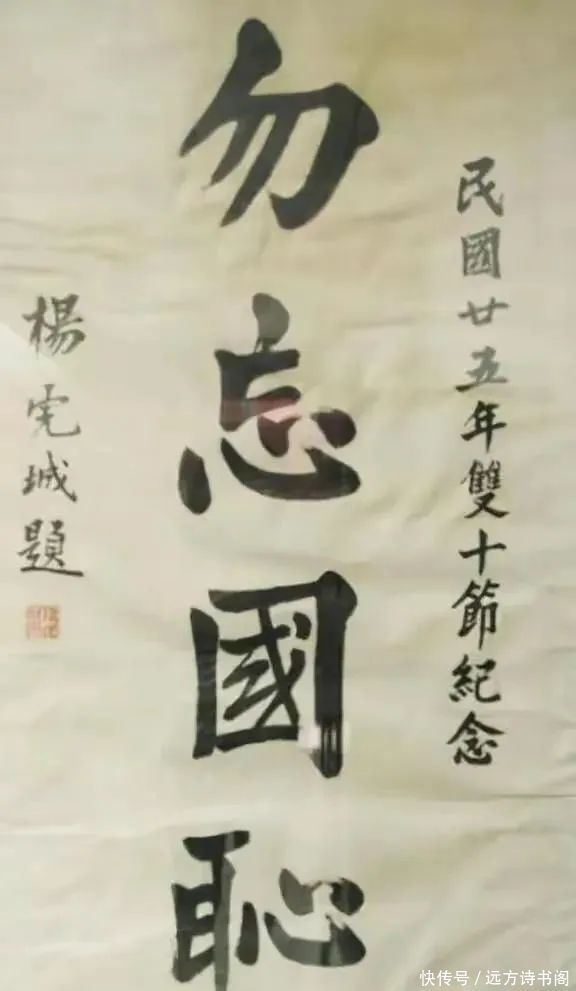 民國廿五年雙十節紀念
勿忘國恥
楊宪城題
快传号/远方诗书阁